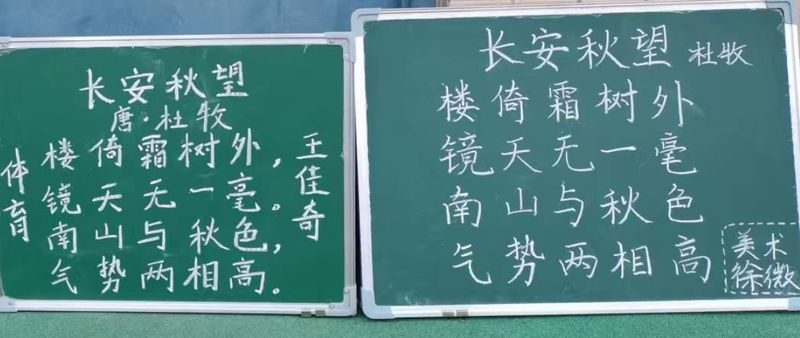 长安秋望
唐·杜牧
楼倚霜树外，
镜天无一毫。
南山与秋色，
气势两相高。
体育
王佳奇
长安秋望 杜牧
楼倚霜树外
镜天无一毫
南山与秋色
气势两相高
美术
徐微